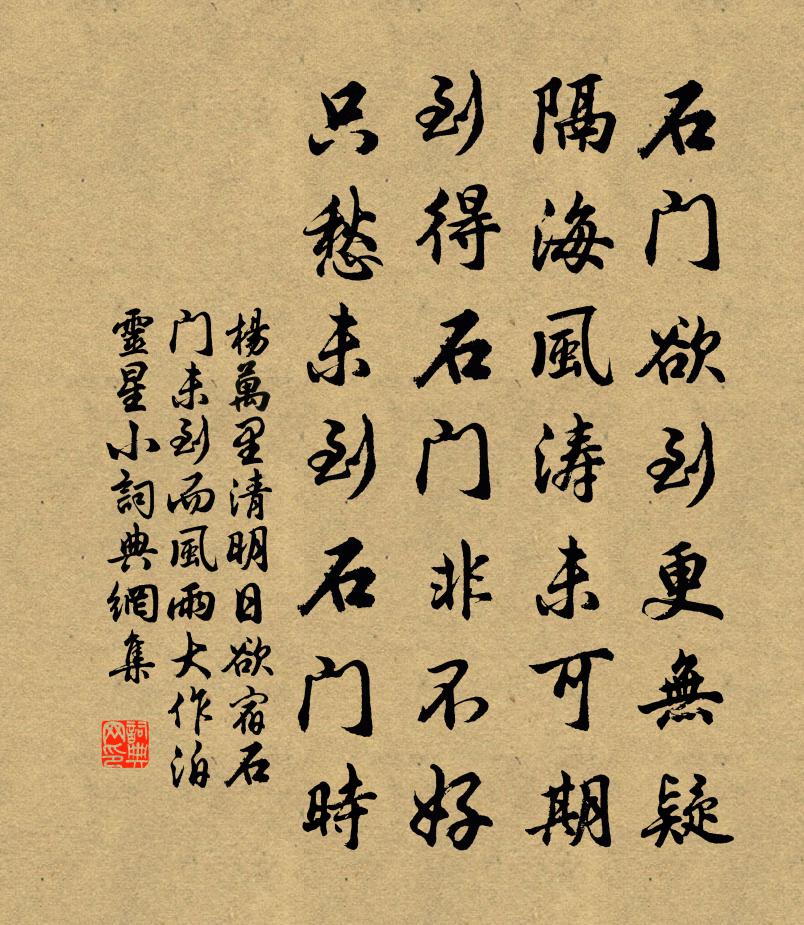 石门欲到更無疑
隔海風涛未可期
到得石门非不好
只愁未到石门時
楊萬里清明日欲宿石
门未到而風雨大作泊
靈星小詞典網集
詞典
网印